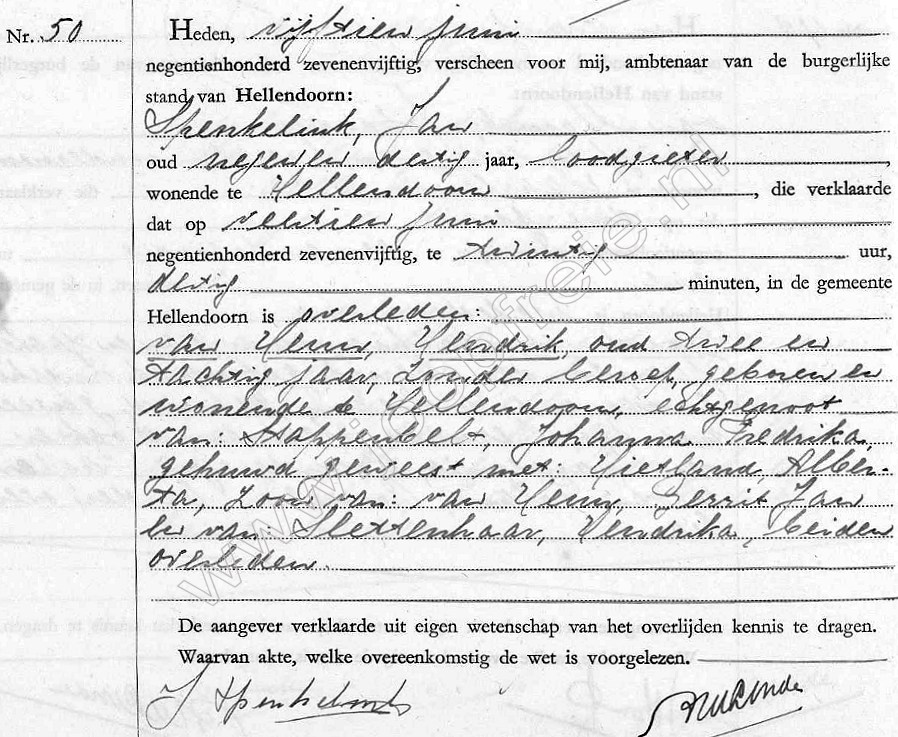 Nr. 50
Heden, vijftien juni
negentienhonderd zevenenvijftig, verscheen voor mij, ambtenaar van de burgerlijke
stand van Hellendoorn:
Spenkelink, Jan
oud negenen dertig jaar, loodgieter,
wonende te Hellendoorn, die verklaarde
dat op veertien juni
negentienhonderd zevenenvijftig, te twintig uur,
dertig minuten, in de gemeente
Hellendoorn is overleden:
van Hemn, Hendrik, oud twee en
tachtig jaar, zonder beroep, geboren en
wonende te Hellendoorn, echtgenoot
van: Stappenbelt, Johanna Fredrika,
gehuwd geweest met: Nietland, Alber-
ta, zoon van: van Hemn, Gerrit Jan
en van: Slettenhaar, Hendrika, beiden
overleden.
De aangever verklaarde uit eigen wetenschap van het overlijden kennis te dragen.
Waarvan akte, welke overeenkomstig de wet is voorgelezen.
J Spenkelink
www.jopfreie.nl